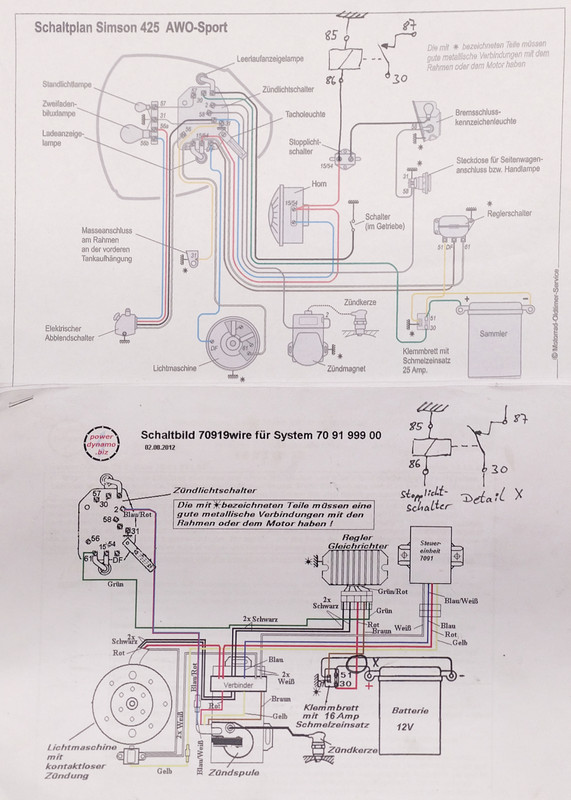 Schaltplan Simson 425 AWO-Sport
85
87
30
86
Die mit * bezeichneten Teile müssen
gute metallische Verbindungen mit dem
Rahmen oder dem Motor haben
Leerlaufanzeigelampe
Zündlichtschalter
Tacholeuchte
Standlichtlampe
Zweifaden-
biluxlampe
Ladeanzeige-
lampe
57
31
56a
56b
30
2
58
56
15/54
Stopplicht-
schalter
15/54
Bremsschluss-
kennzeichenleuchte
Steckdose für Seitenwagen-
anschluss bzw. Handlampe
31
58
Horn
15/54
Schalter
(im Getriebe)
Reglerschalter
51 DF 61
Masseanschluss
am Rahmen
an der vorderen
Tankaufhängung
31
Elektrischer
Abblendschalter
Lichtmaschine
DF
51
Zündkerze
2
Zündmagnet
51
30
Klemmbrett mit
Schmelzeinsatz
25 Amp.
+
–
Sammler
© Motorrad-Oldtimer-Service
power
dynamo
.biz
Schaltbild 70919wire für System 70 91 999 00
02.08.2012
85
87
86
30
Stopplicht-
schalter
Detail X
Zündlichtschalter
Die mit * bezeichneten Teile müssen eine
gute metallische Verbindungen mit den
Rahmen oder dem Motor haben !
57
30
2
Blau/Rot
58
31
56
15/54
61
DF
Grün
Regler
Gleichrichter
Steuer-
einheit
7091
Grün/Rot
2x
Schwarz
Grün
Rot
Braun
Blau/Weiß
Weiß
Blau
Rot
Gelb
2x Schwarz
2x
Schwarz
Rot
Blau/Rot
Blau
2x
Weiß
Verbinder
Braun
Rot
Gelb
2x Weiß
Blau/Weiß
Gelb
X
51
30
+
–
Klemmbrett
mit 16 Amp
Schmelzeinsatz
Batterie
12V
Lichtmaschine
mit
kontaktloser
Zündung
Zündspule
Zündkerze